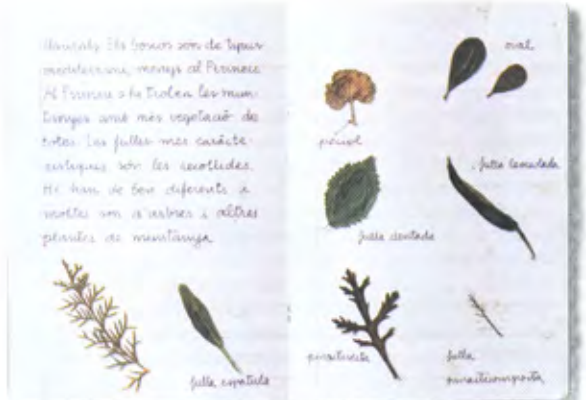 Els boscos són de tipus
mediterrani, menys al Pirineu.
Al Pirineu s he troben les mun-
tanyes amb més vegetació de
totes. Les fulles més caracte-
rístiques són les recollides.
Hi han de ben diferents i
moltes son d'arbres i altres
plantes de muntanya
fulla espatula
pecíol
oval
fulla dentada
fulla lanceolada
fulla